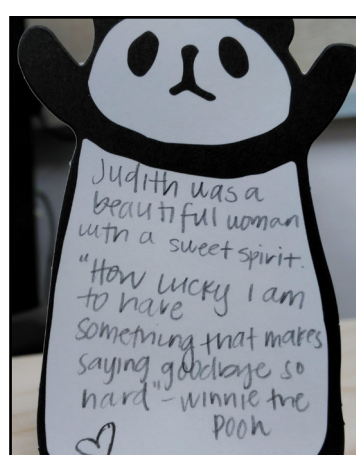 Judith was a
beautiful woman
with a sweet spirit.
"How lucky I am
to have
something that makes
saying goodbye so
hard" - winnie the
Pooh